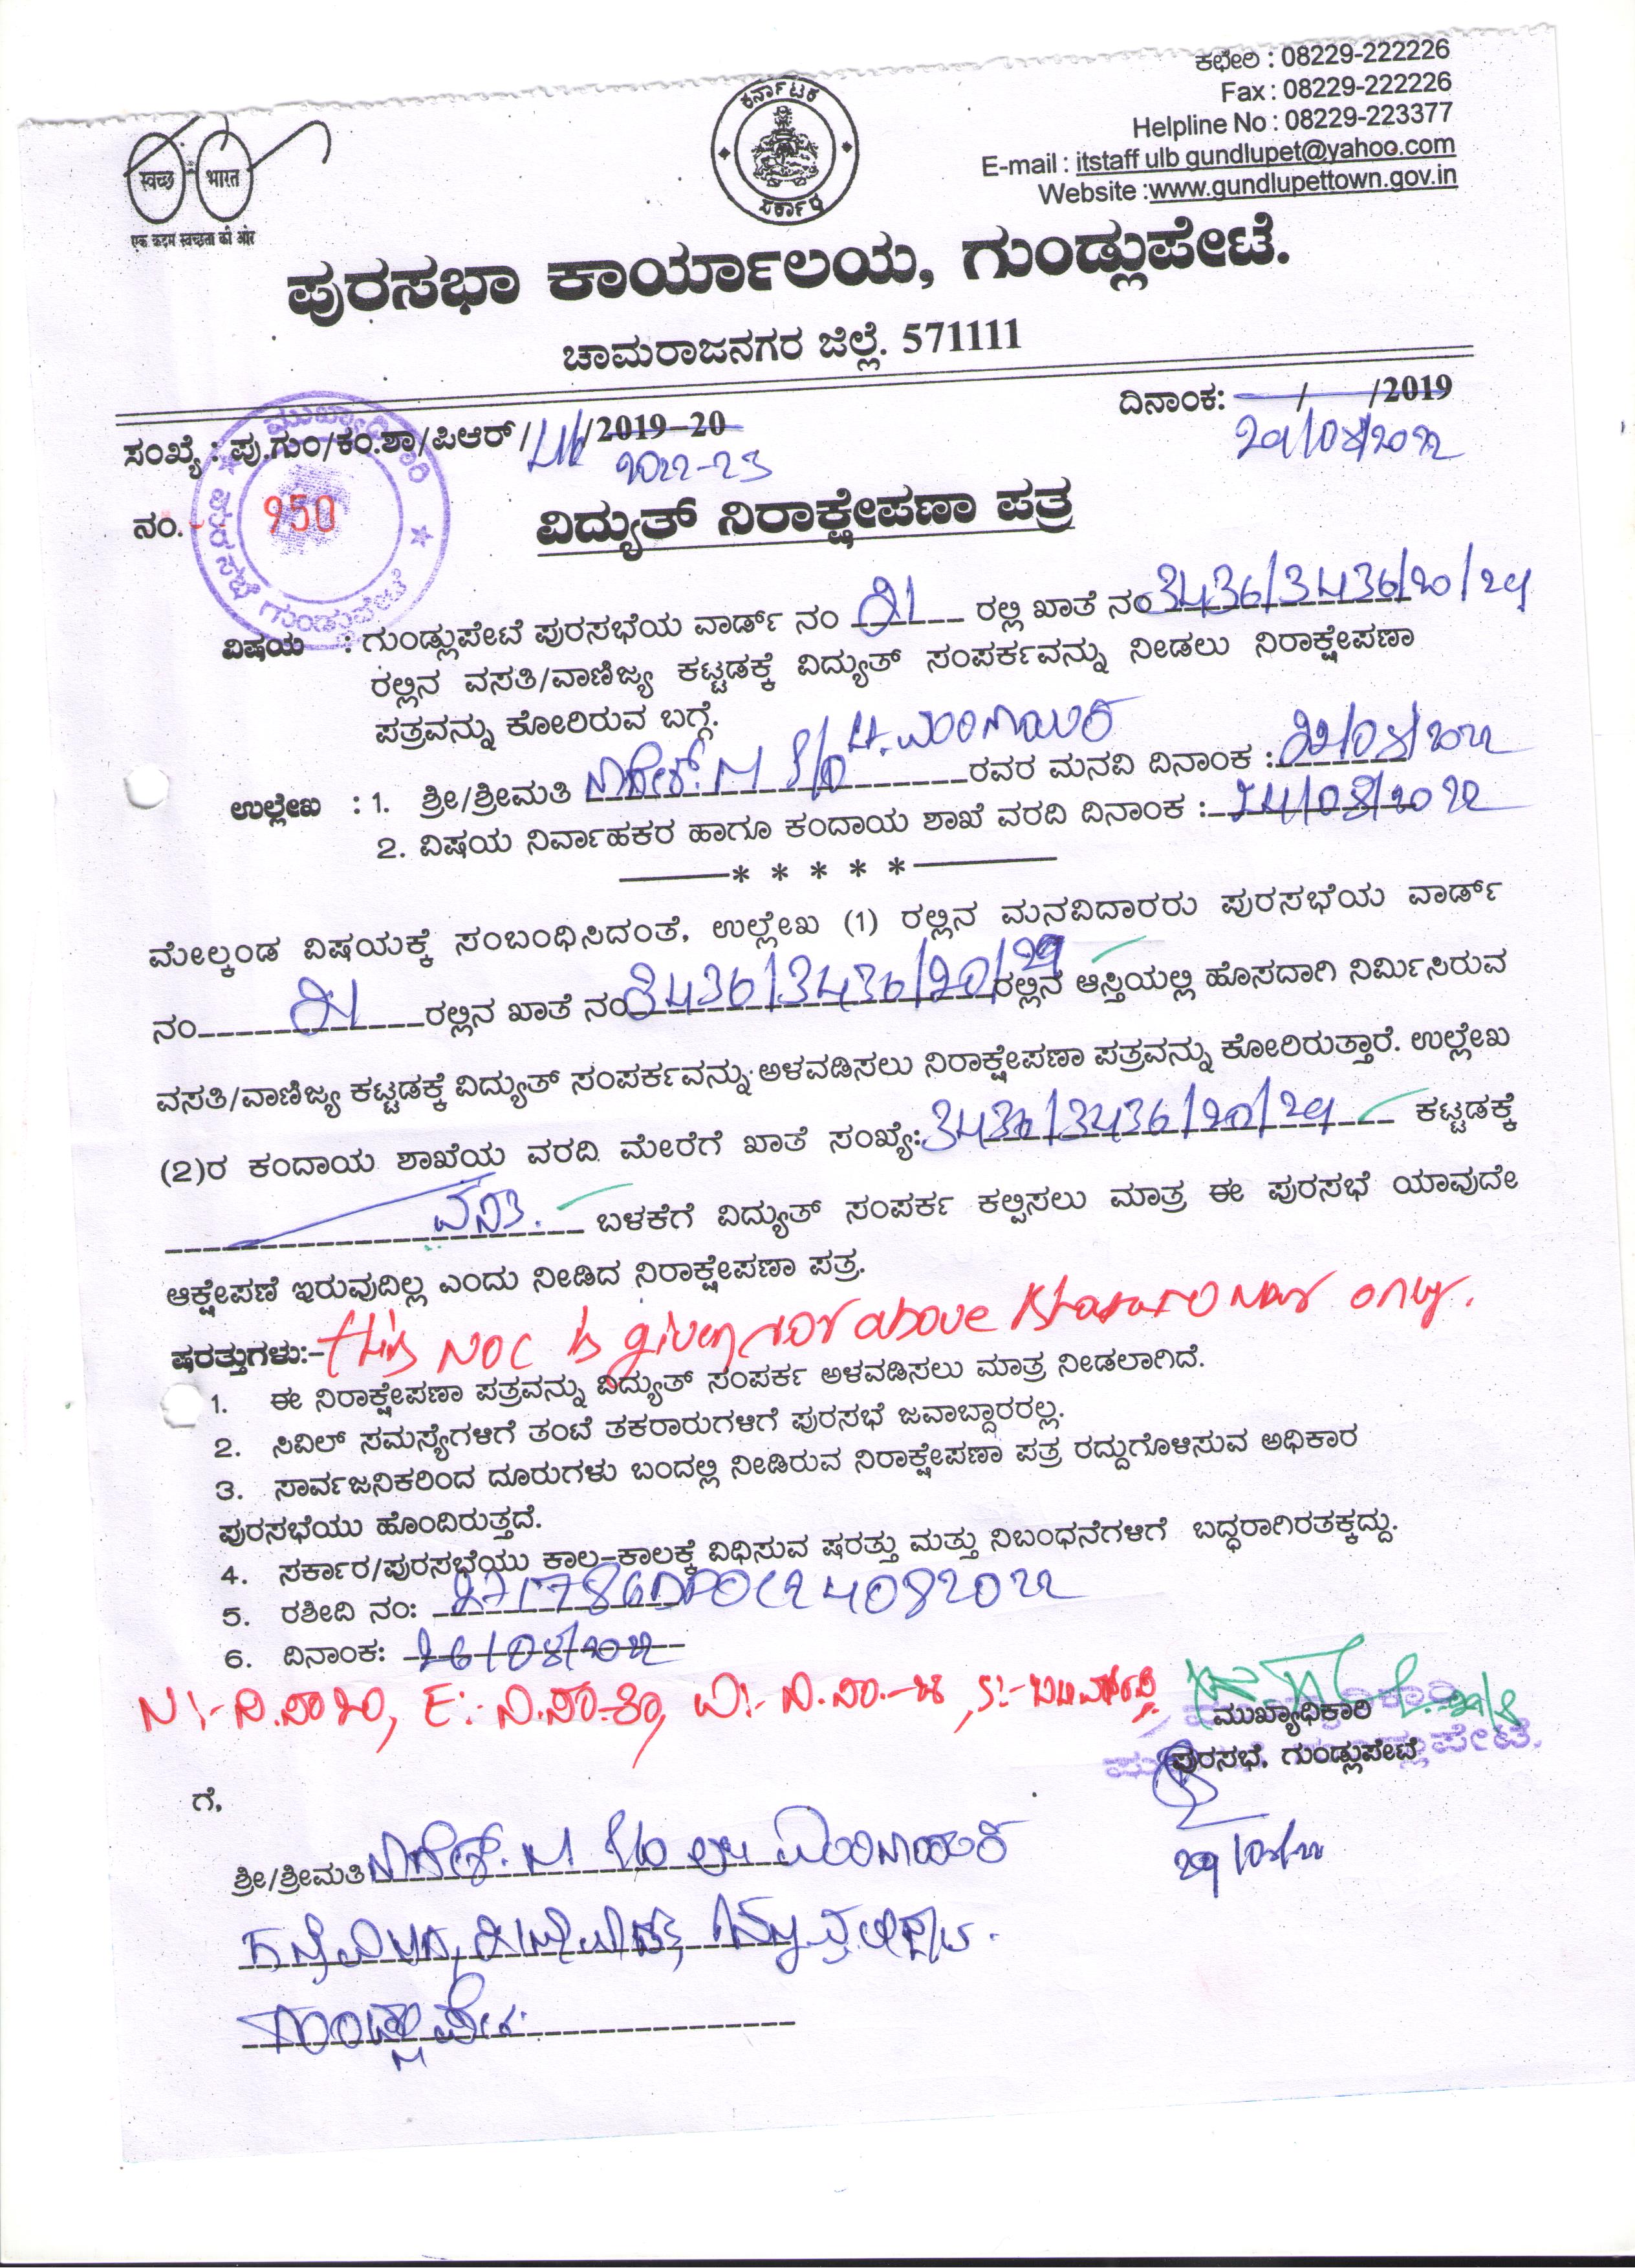 ಕಛೇರಿ : 08229-222226
Fax : 08229-222226
Helpline No : 08229-223377
E-mail : itstaff ulb gundlupet@yahoo.com
Website :www.gundlupettown.gov.in
स्वच्छ भारत
एक कदम स्वच्छता की ओर
ಕರ್ನಾಟಕ
ಸರ್ಕಾರ
ಪುರಸಭಾ ಕಾರ್ಯಾಲಯ, ಗುಂಡ್ಲುಪೇಟೆ.
ಚಾಮರಾಜನಗರ ಜಿಲ್ಲೆ. 571111
ಸಂಖ್ಯೆ : ಪು.ಗುಂ/ಕಂ.ಶಾ/ಪಿಆರ್ / /2019-20
2022-23
ದಿನಾಂಕ: / /2019
29/08/2022
ನಂ.- 950
ಮುಖ್ಯಾಧಿಕಾರಿ
ಪುರಸಭೆ ಗುಂಡ್ಲುಪೇಟೆ
ವಿದ್ಯುತ್ ನಿರಾಕ್ಷೇಪಣಾ ಪತ್ರ
ವಿಷಯ : ಗುಂಡ್ಲುಪೇಟೆ ಪುರಸಭೆಯ ವಾರ್ಡ್ ನಂ 21 ರಲ್ಲಿ ಖಾತೆ ನಂ 3436/3436/20/29
ರಲ್ಲಿನ ವಸತಿ/ವಾಣಿಜ್ಯ ಕಟ್ಟಡಕ್ಕೆ ವಿದ್ಯುತ್ ಸಂಪರ್ಕವನ್ನು ನೀಡಲು ನಿರಾಕ್ಷೇಪಣಾ
ಪತ್ರವನ್ನು ಕೋರಿರುವ ಬಗ್ಗೆ.
ಉಲ್ಲೇಖ : 1. ಶ್ರೀ/ಶ್ರೀಮತಿ M S/o ರವರ ಮನವಿ ದಿನಾಂಕ : 22/08/2022
2. ವಿಷಯ ನಿರ್ವಾಹಕರ ಹಾಗೂ ಕಂದಾಯ ಶಾಖೆ ವರದಿ ದಿನಾಂಕ : 24/08/2022
* * * * *
ಮೇಲ್ಕಂಡ ವಿಷಯಕ್ಕೆ ಸಂಬಂಧಿಸಿದಂತೆ, ಉಲ್ಲೇಖ (1) ರಲ್ಲಿನ ಮನವಿದಾರರು ಪುರಸಭೆಯ ವಾರ್ಡ್
ನಂ 21 ರಲ್ಲಿನ ಖಾತೆ ನಂ 3436/3436/20/29 ರಲ್ಲಿನ ಆಸ್ತಿಯಲ್ಲಿ ಹೊಸದಾಗಿ ನಿರ್ಮಿಸಿರುವ
ವಸತಿ/ವಾಣಿಜ್ಯ ಕಟ್ಟಡಕ್ಕೆ ವಿದ್ಯುತ್ ಸಂಪರ್ಕವನ್ನು ಅಳವಡಿಸಲು ನಿರಾಕ್ಷೇಪಣಾ ಪತ್ರವನ್ನು ಕೋರಿರುತ್ತಾರೆ. ಉಲ್ಲೇಖ
(2)ರ ಕಂದಾಯ ಶಾಖೆಯ ವರದಿ ಮೇರೆಗೆ ಖಾತೆ ಸಂಖ್ಯೆ: 3436/3436/20/29 ಕಟ್ಟಡಕ್ಕೆ
ವಸತಿ. ಬಳಕೆಗೆ ವಿದ್ಯುತ್ ಸಂಪರ್ಕ ಕಲ್ಪಿಸಲು ಮಾತ್ರ ಈ ಪುರಸಭೆ ಯಾವುದೇ
ಆಕ್ಷೇಪಣೆ ಇರುವುದಿಲ್ಲ ಎಂದು ನೀಡಿದ ನಿರಾಕ್ಷೇಪಣಾ ಪತ್ರ.
ಷರತ್ತುಗಳು:- This NOC is given for above only.
1. ಈ ನಿರಾಕ್ಷೇಪಣಾ ಪತ್ರವನ್ನು ವಿದ್ಯುತ್ ಸಂಪರ್ಕ ಅಳವಡಿಸಲು ಮಾತ್ರ ನೀಡಲಾಗಿದೆ.
2. ಸಿವಿಲ್ ಸಮಸ್ಯೆಗಳಿಗೆ ತಂಟೆ ತಕರಾರುಗಳಿಗೆ ಪುರಸಭೆ ಜವಾಬ್ದಾರರಲ್ಲ.
3. ಸಾರ್ವಜನಿಕರಿಂದ ದೂರುಗಳು ಬಂದಲ್ಲಿ ನೀಡಿರುವ ನಿರಾಕ್ಷೇಪಣಾ ಪತ್ರ ರದ್ದುಗೊಳಿಸುವ ಅಧಿಕಾರ
ಪುರಸಭೆಯು ಹೊಂದಿರುತ್ತದೆ.
4. ಸರ್ಕಾರ/ಪುರಸಭೆಯು ಕಾಲ-ಕಾಲಕ್ಕೆ ವಿಧಿಸುವ ಷರತ್ತು ಮತ್ತು ನಿಬಂಧನೆಗಳಿಗೆ ಬದ್ಧರಾಗಿರತಕ್ಕದ್ದು.
5. ರಶೀದಿ ನಂ:
6. ದಿನಾಂಕ: 26/08/2022
ಮುಖ್ಯಾಧಿಕಾರಿ
ಪುರಸಭೆ, ಗುಂಡ್ಲುಪೇಟೆ
ಗೆ,
ಶ್ರೀ/ಶ್ರೀಮತಿ M S/o
ಗುಂಡ್ಲುಪೇಟೆ